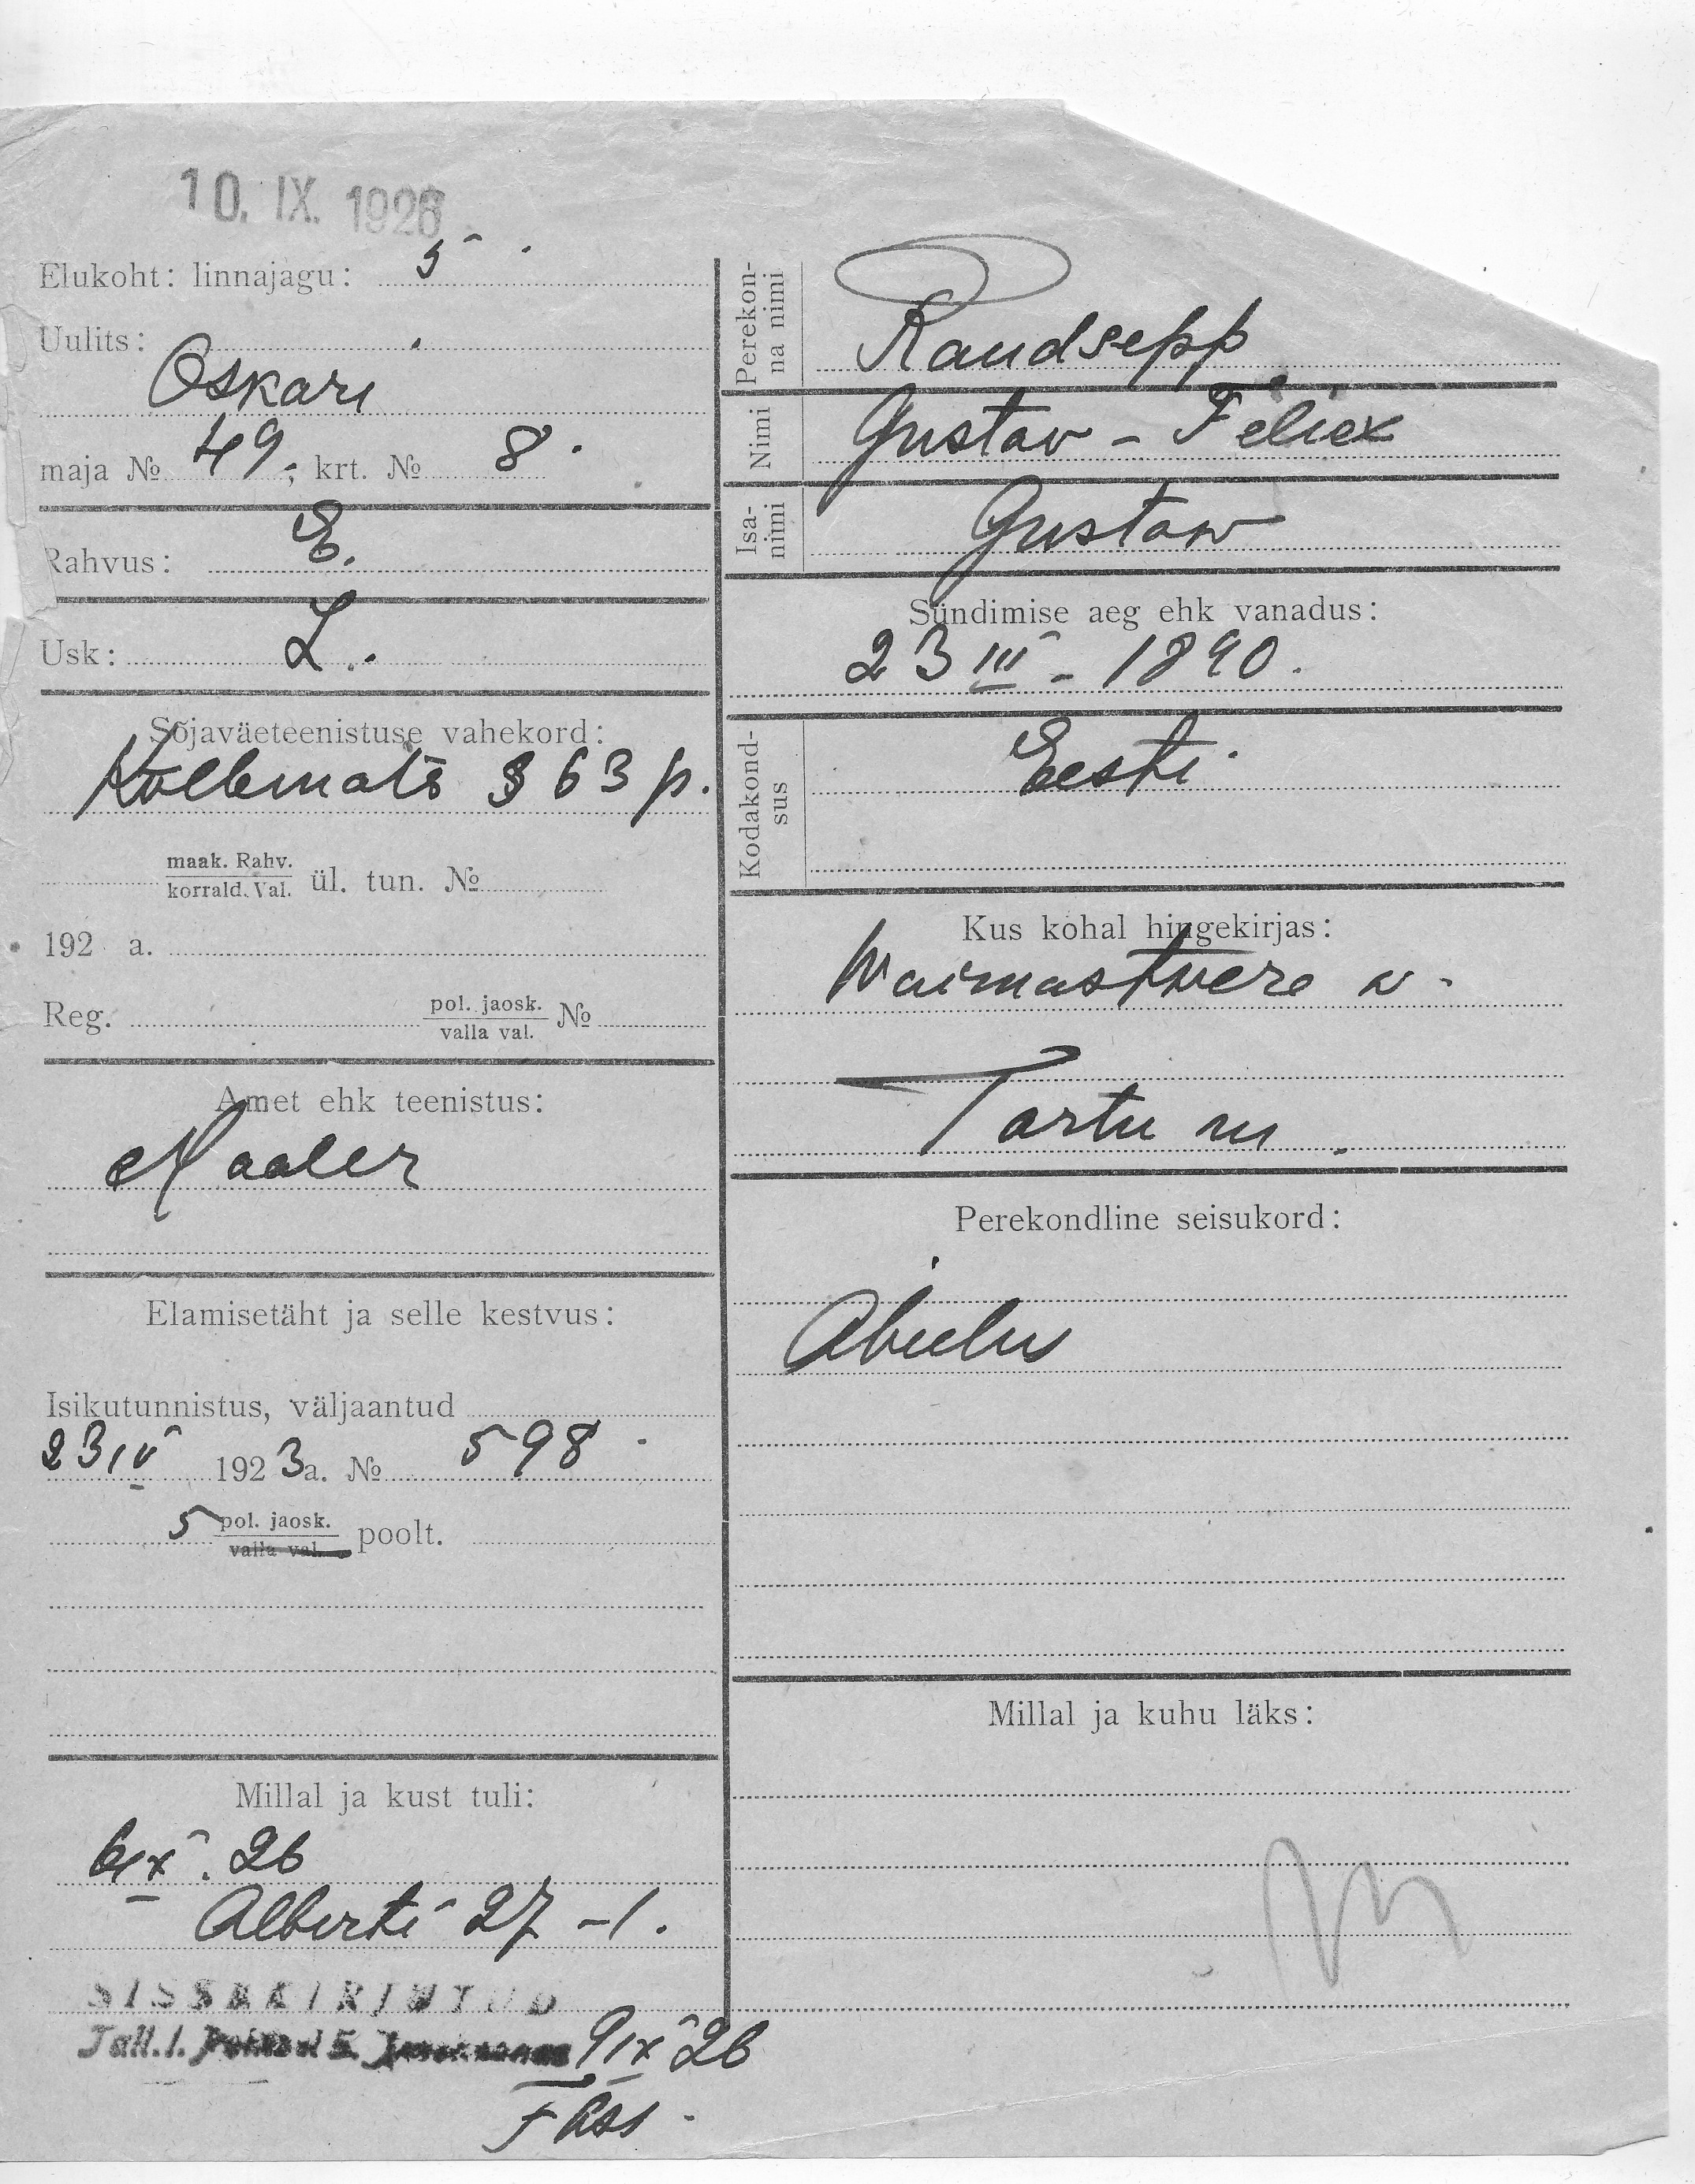 10. IX. 1926
Elukoht: linnajagu: 5
Uulits:
Oskari
maja № 49; krt. № 8.
Rahvus: E.
Usk: L.
Sõjaväeteenistuse vahekord:
§ 63 p.
maak. Rahv.
korrald. Val. ül. tun. №
192 a.
Reg. pol. jaosk.
valla val. №
Amet ehk teenistus:
Maaler
Elamisetäht ja selle kestvus:
Isikutunnistus, väljaantud
23 IV 1923 a. № 598
5 pol. jaosk.
valla val. poolt.
Millal ja kust tuli:
6 IX. 26
Alberti 27 - 1.
SISSEKIRJUTUD
Tall. l. Politsei 5. Jaoskonnas 9 IX 26
Perekon-
na nimi
Raudsepp
Nimi
Gustav - Feliex
Isa-
nimi
Gustav
Sündimise aeg ehk vanadus:
23 III - 1890.
Kodakond-
sus
Eesti
Kus kohal hingekirjas:
Waimastwere w.
Tartu m.
Perekondline seisukord:
Abielus
Millal ja kuhu läks: